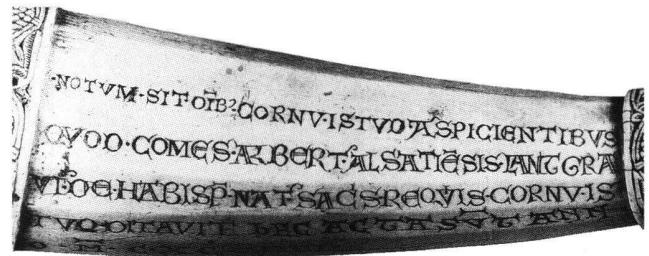 ·NOTVM·SIT OĪB₂ CORNV·ISTVD ASPICIENTIBVS
QVOD·COMES·ALBERT ALSATIĒSIS·LANTGRA
VI DE HABISP NAT SAC S REQVIIS·CORNV·IS
TVD DITAVIT hEC ACTA SVT ANN